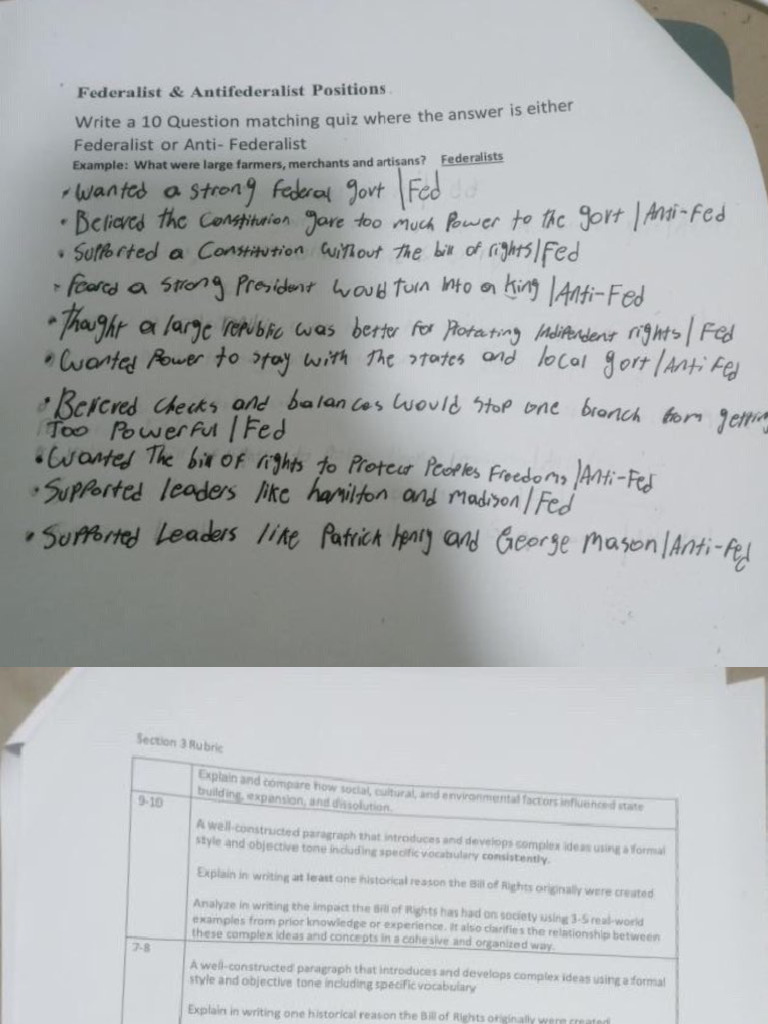 Federalist & Antifederalist Positions
Write a 10 Question matching quiz where the answer is either
Federalist or Anti- Federalist
Example: What were large farmers, merchants and artisans? Federalists
• Wanted a strong federal govt | Fed
• Believed the Constitution gave too much Power to the govt | Anti-Fed
• Supported a Constitution without the bill of rights | Fed
• Feared a strong President would turn into a king | Anti-Fed
• Thought a large republic was better for Protating Indipendent rights | Fed
• Wanted Power to stay with the states and local govt | Anti Fed
• Belreved checks and balances would stop one branch from getting
Too Powerful | Fed
• Wanted The bill of rights to Protect Peoples Freedoms | Anti-Fed
• Supported leaders like hamilton and madison | Fed
• Supported Leaders like Patrick henry and George mason | Anti-Fed
Section 3 Rubric
Explain and compare how social, cultural, and environmental factors influenced state
building, expansion, and dissolution.
9-10
A well-constructed paragraph that introduces and develops complex ideas using a formal
style and objective tone including specific vocabulary consistently.
Explain in writing at least one historical reason the Bill of Rights originally were created
Analyze in writing the impact the Bill of Rights has had on society using 3-5 real-world
examples from prior knowledge or experience. It also clarifies the relationship between
these complex ideas and concepts in a cohesive and organized way.
7-8
A well-constructed paragraph that introduces and develops complex ideas using a formal
style and objective tone including specific vocabulary
Explain in writing one historical reason the Bill of Rights originally were created